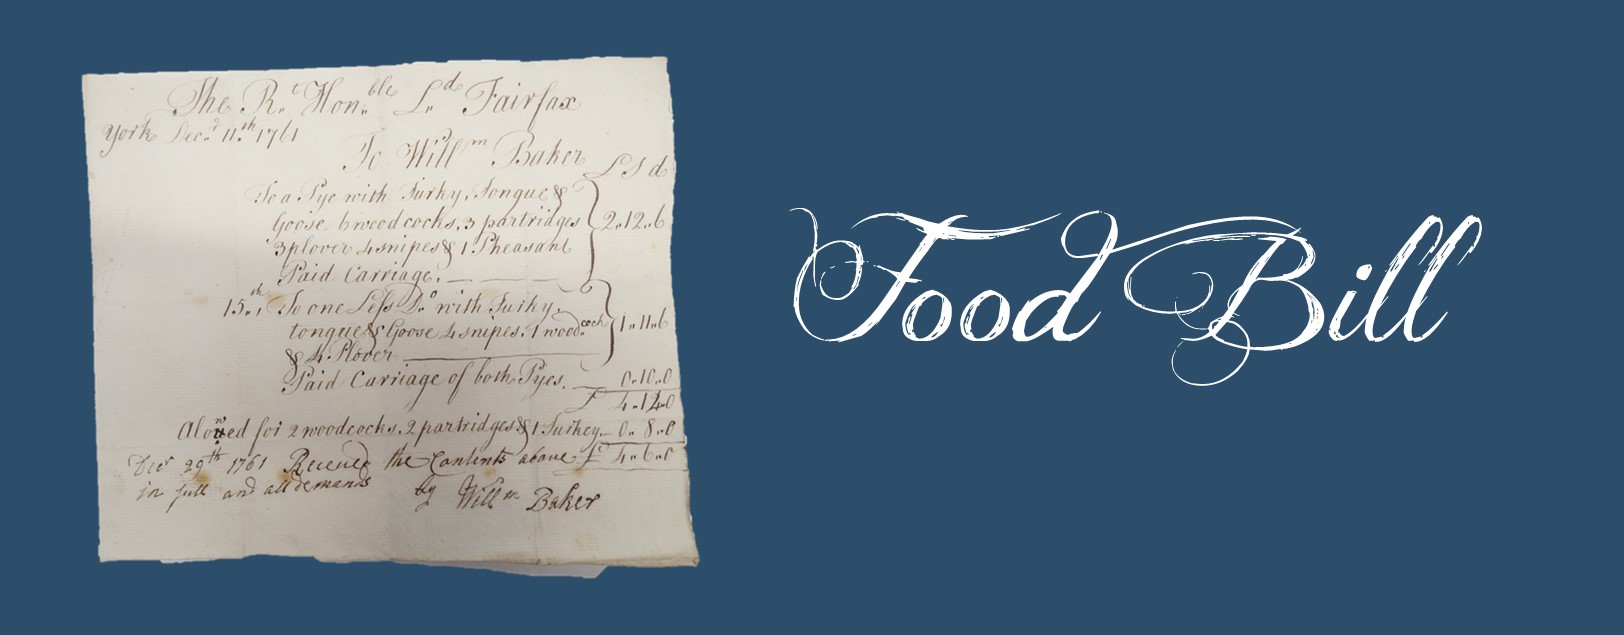 The Rt. Honble Ld. Fairfax
York Decr. 11th 1761
To Willm Baker
£ S d
To a Pye with Turky, Tongue &
Goose 6 woodcocks, 3 partridges 2 „ 12 „ 6
3 plover 4 snipes & 1 Pheasant
Paid Carriage.
15th „ To one Less Do with Turky,
tongue & Goose 4 snipes. 1 woodcock 1 „ 11 „ 6
& 4 Plover
Paid Carriage of both Pyes. 0 „ 10 „ 0
£ 4 „ 12 „ 0
Alowed for 2 woodcocks, 2 partridges & 1 Turkey 0 „ 8 „ 0
Decr 29th 1761 Received the Contents above £ 4 „ 6 „ 0
in full and all demands by Willm Baker
Food Bill